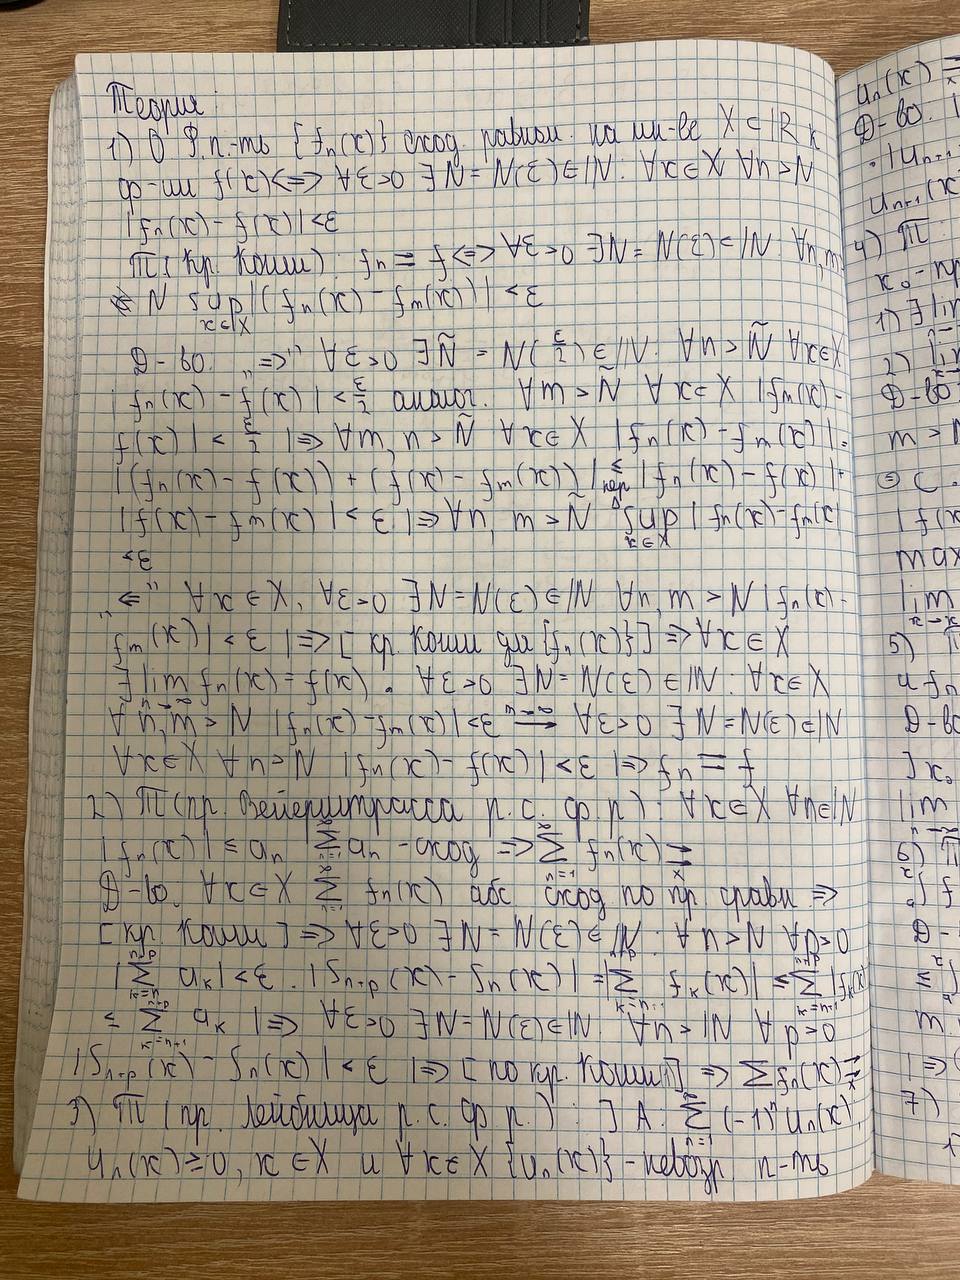 Теория:
1) О Ф.п.-ть {fₙ(x)} сход. равном. на мн-ве X ⊂ ℝ к
ф-ии f(x) <=> ∀ε>0 ∃N = N(ε)∈ℕ: ∀x∈X ∀n>N
|fₙ(x) - f(x)| < ε
П (кр. Коши): fₙ ⇉ f <=> ∀ε>0 ∃N = N(ε)∈ℕ: ∀n,m>
N sup |(fₙ(x) - fₘ(x))| < ε
x∈X
Д-во. "=>" ∀ε>0 ∃Ñ = N(ε/2)∈ℕ: ∀n>Ñ ∀x∈X
|fₙ(x) - f(x)| < ε/2 аналог. ∀m>Ñ ∀x∈X |fₘ(x) -
f(x)| < ε/2 |=> ∀n,m>Ñ ∀x∈X |fₙ(x) - fₘ(x)| =
|(fₙ(x) - f(x)) + (f(x) - fₘ(x))| ≤ нер Δ |fₙ(x) - f(x)| +
|f(x) - fₘ(x)| < ε |=> ∀n,m > Ñ sup |fₙ(x) - fₘ(x)|
x∈X
< ε
"<=" ∀x∈X, ∀ε>0 ∃N=N(ε)∈ℕ ∀n,m>N |fₙ(x) -
fₘ(x)| < ε |=> [кр. Коши для {fₙ(x)}] => ∀x∈X
∃lim fₙ(x) = f(x). ∀ε>0 ∃N=N(ε)∈ℕ: ∀x∈X
n→∞
∀n,m>N |fₙ(x) - fₘ(x)| < ε => ∀ε>0 ∃N=N(ε)∈ℕ
∀x∈X ∀n>N |fₙ(x) - f(x)| < ε |=> fₙ ⇉ f
2) П (пр. Вейерштрасса р.с. ф.р): ∀x∈X ∀n∈ℕ
|fₙ(x)| ≤ aₙ ∑ₙ₌₁^∞ aₙ - сход => ∑ₙ₌₁^∞ fₙ(x) ⇉
X
Д-во. ∀x∈X ∑ₙ₌₁^∞ fₙ(x) абс сход по пр. сравн =>
[кр. Коши] => ∀ε>0 ∃N = N(ε)∈ℕ: ∀n>N ∀p>0
|∑ₖ₌ₙ^(n+p) aₖ| < ε. |Sₙ₊ₚ(x) - Sₙ(x)| = |∑ₖ₌ₙ₊₁^(n+p) fₖ(x)| ≤ ∑ₖ₌ₙ₊₁^(n+p) |fₖ(x)|
≤ ∑ₖ₌ₙ₊₁^(n+p) aₖ |=> ∀ε>0 ∃N=N(ε)∈ℕ ∀n>N ∀p>0
|Sₙ₊ₚ(x) - Sₙ(x)| < ε |=> [по кр. Коши] => ∑fₙ(x) ⇉
X
3) П (пр. Лейбница р.с. ф.р.): ] A: ∑ₙ₌₁^∞ (-1)ⁿ uₙ(x),
uₙ(x) ≥ 0, x∈X и ∀x∈X {uₙ(x)} - невозр. п-ть
uₙ(x) ⇉
Д-во.
|uₙ₊₁
uₙ₊₁(x)
4) П:
x₀ - пр
1) ∃lim
2) lim
Д-во
m > N
= C
|f(x
max
lim
5)
и fₙ
Д-во
] x₀
lim
6) П
Д-
m
|=>
7)